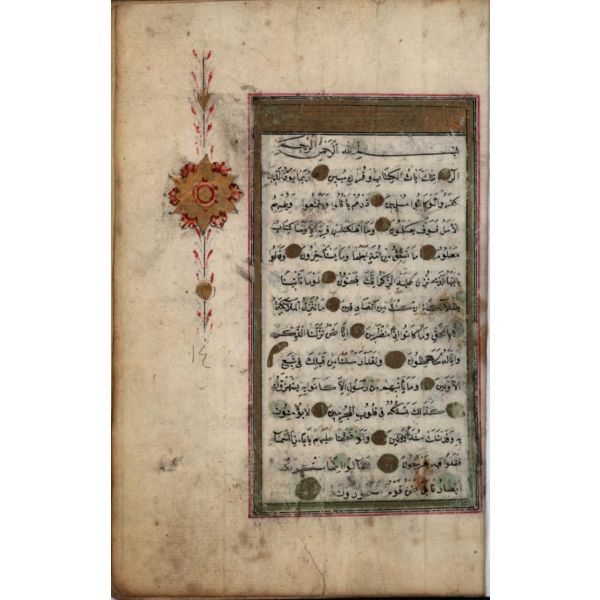 بسم الله الرحمن الرحيم
الر تلك ايات الكتاب وقران مبين ربما يود الذين
كفروا لو كانوا مسلمين ذرهم ياكلوا ويتمتعوا ويلههم
الامل فسوف يعلمون وما اهلكنا من قرية الا ولها كتاب
معلوم ما تسبق من امة اجلها وما يستاخرون وقالوا
يا ايها الذي نزل عليه الذكر انك لمجنون لو ما تاتينا
بالملائكة ان كنت من الصادقين ما ننزل الملائكة
الا بالحق وما كانوا اذا منظرين انا نحن نزلنا الذكر
وانا له لحافظون ولقد ارسلنا من قبلك في شيع
الاولين وما ياتيهم من رسول الا كانوا به يستهزؤن
كذلك نسلكه في قلوب المجرمين لا يؤمنون
به وقد خلت سنة الاولين ولو فتحنا عليهم بابا من السماء
فظلوا فيه يعرجون لقالوا انما سكرت
ابصارنا بل نحن قوم مسحورون
١٤